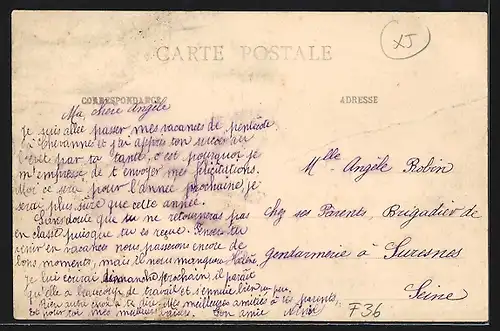 CARTE POSTALE
XJ
CORRESPONDANCE
ADRESSE
Ma chère Angèle
Je suis allée passer mes vacances de pentecôte
à Chevannes et j'ai appris ton succès au
par ta tante, c'est pourquoi je
m'empresse de t'envoyer mes félicitations.
Moi ce sera pour l'année prochaine, je
serai plus sûre que cette année.
Sans doute que tu ne retourneras pas
en classe puisque tu es reçue. Encore tu
en vacances nous passerons encore de
bons moments, mais il nous manquera Hélène
Je lui écrirai dimanche prochain il paraît
qu'elle a beaucoup de travail et s'ennuie bien un peu.
Rien autre chose à te dire, des meilleures amitiés à tes parents,
et pour toi mes meilleurs baisers. Ton amie
Mlle Angèle Robin
chez ses Parents, Brigadier de
gendarmerie à Suresnes
Seine
F36